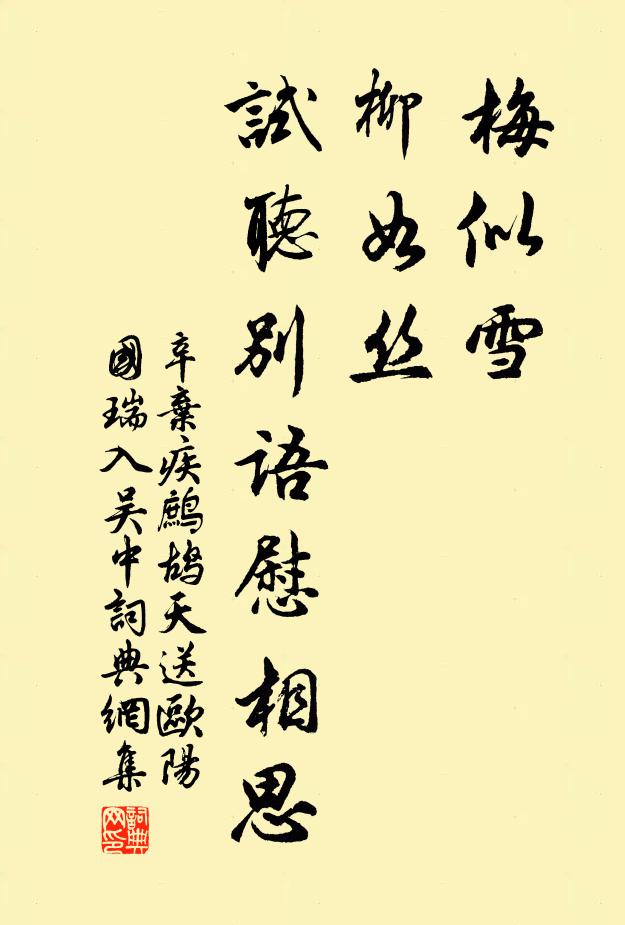 梅似雪
柳如丝
試聽别語慰相思
辛棄疾鷓鴣天送歐陽
國瑞入吴中詞典網集
詞典
网印